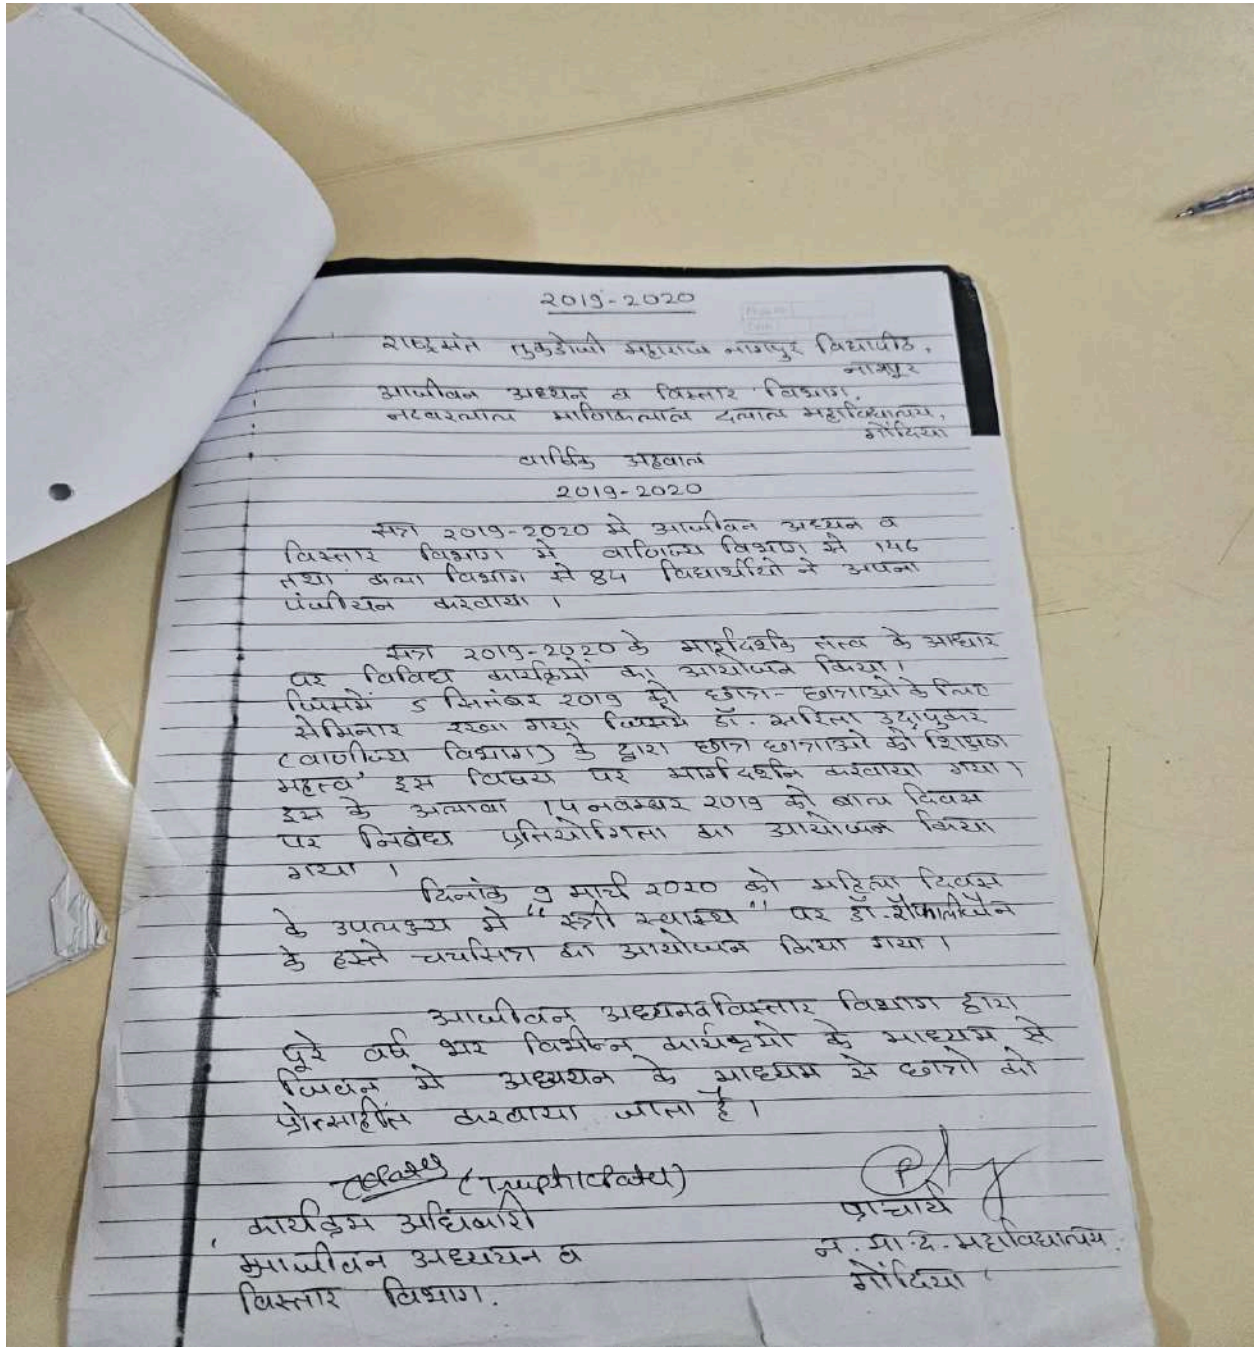 2019-2020
राष्ट्रसंत तुकडोजी महाराज नागपुर विद्यापीठ,
नागपुर
आजीवन अध्यन व विस्तार विभाग,
नटवरलाल माणिकलाल दलाल महाविद्यालय,
गोंदिया
वार्षिक अहवाल
2019-2020
सत्र 2019-2020 मे आजीवन अध्यन व
विस्तार विभाग मे वाणिज्य विभाग से 146
तथा कला विभाग से 84 विद्यार्थीयो ने अपना
पंजीयन करवाया ।
सत्र 2019-2020 के मार्गदर्शक तत्व के आधार
पर विविध कार्यक्रमों का आयोजन किया।
जिसमें 5 सितंबर 2019 को छात्र-छात्राओ के लिए
सेमिनार रखा गया जिसमे डॉ. सरिता उदापुरकर
(वाणीज्य विभाग) के द्वारा छात्र छात्राओ को 'शिक्षण
महत्व' इस विषय पर मार्गदर्शन करवाया गया।
इस के अलावा 14 नवम्बर 2019 को बाल दिवस
पर निबंध प्रतियोगिता का आयोजन किया
गया ।
दिनांक 9 मार्च 2020 को महिला दिवस
के उपलक्ष्य मे "स्त्री स्वास्थ" पर डॉ. शैफाली जैन
के हस्ते चर्चासत्र का आयोजन किया गया ।
आजीवन अध्यन व विस्तार विभाग द्वारा
पुरे वर्ष भर विभीन्न कार्यक्रमो के माध्यम से
जिवन मे अध्ययन के माध्यम से छात्रो को
प्रोत्साहीत करवाया जाता है।
(Trupti Patel)
कार्यक्रम अधिकारी
आजीवन अध्ययन व
विस्तार विभाग.
प्राचार्य
न. मा. द. महाविद्यालय
गोंदिया